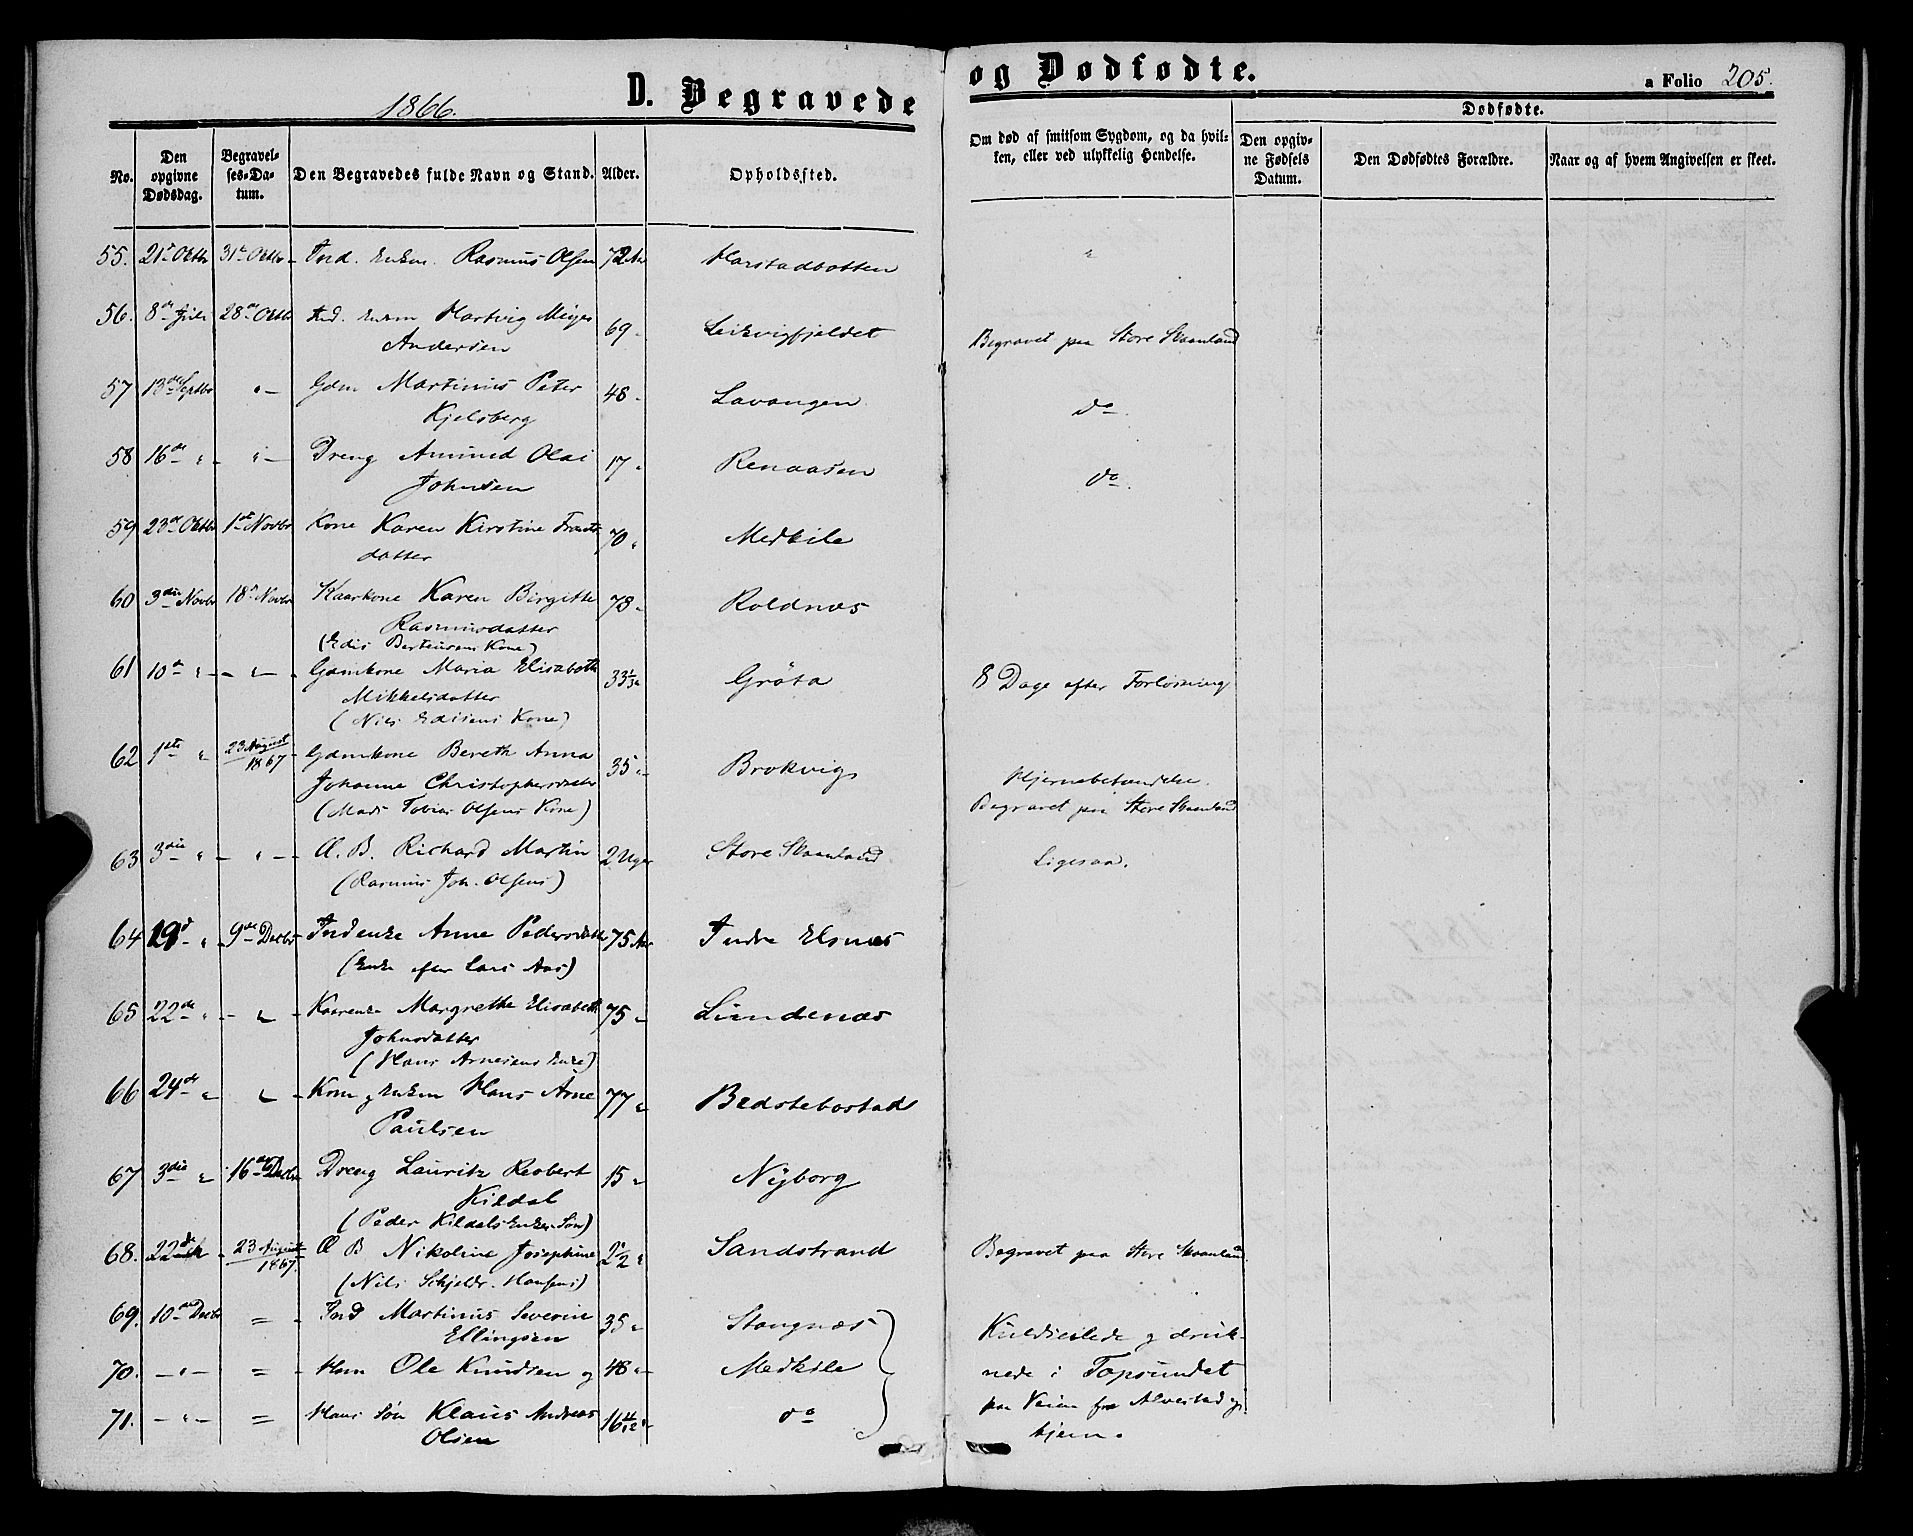 1866.
D. Begravede
og Dødfødte.
a Folio 205.
No.
Den opgivne Dødsdag.
Begravelses-Datum.
Den Begravedes fulde Navn og Stand.
Alder.
Opholdssted.
Om død af smitsom Sygdom, og da hvilken, eller ved ulykkelig Hendelse.
Dødfødte.
Den opgivne Fødsels Datum.
Den Dødfødtes Forældre.
Naar og af hvem Angivelsen er skeet.
55. 21de Oktbr 31te Oktbr Ind. Enkem. Rasmus Olsen 72 Aar Harstadbotten "
56. 8de Juli 28de Oktbr Ind. Enkem Hartvig Meyer 69 " Leikvigfjeldet Begravet paa Store Skaanland
Andersen
57 13de Septbr " Gdm Martinus Peter 48 " Lavangen do.
Kjelsberg
58 16de " " Dreng Amund Olai 17 " Renaasen do.
Johnsen
59 23de Oktbr 1ste Novbr Kone Karen Kirstine Frants 70 " Medkile
datter
60 3die Novbr 18de Novbr Kaarkone Karen Birgitte 78 " Roldnæs
Rasmusdatter
(Edis Berteusens Kone)
61 10de " " Gdmkone Maria Elisabeth 33 Grøta 8 Dage efter Forløsning
Mikkelsdatter
(Nils Edisens Kone)
62 1ste " 23 August 1867 Gdmkone Bereth Anna 35 " Brokvig
Johanne Christophersdatter Hjernebetændelse.
(Mads Tobias Olsens Kone) Begravet paa Store Skaanland
63 3die " " Æ. B. Richard Martin 2 Uger Store Skaanland Ligesaa.
(Rasmus Joh. Olsens)
64 19de " 9de Decbr Indenke Anne Pedersdatter 75 Aar Indre Elsnæs
(Enke efter Lars Aas)
65 22de " " Kaarenke Margrethe Elisabeth 75 " Lundenæs
Johnsdatter
(Hans Arnesens Enke)
66 24de " " Kone g Enkem Hans Arne 77 " Bedstebostad
Paulsen
67 3die " 16de Decbr Dreng Lauritz Reobert 15 " Nyborg
Kildal
(Peder Kildals Enkes Søn)
68. 22de 23 August 1867. Æ B Nikoline Josephine 2 1/2 " Sandstrand Begravet paa Store Skaanland
(Nils Schjeldr. Hansens)
69. 10de Decbr = Ind Martinus Severin 35 " Stangnæs Kuldseilede g druk-
Ellingsen
70. " = Hans Ole Knudsen og 48 " Medkile nede i Topsundet
71. " = Hans Søn Klaus Andreas 16 do paa Veien fra Alvestad g
Olsen hjem.